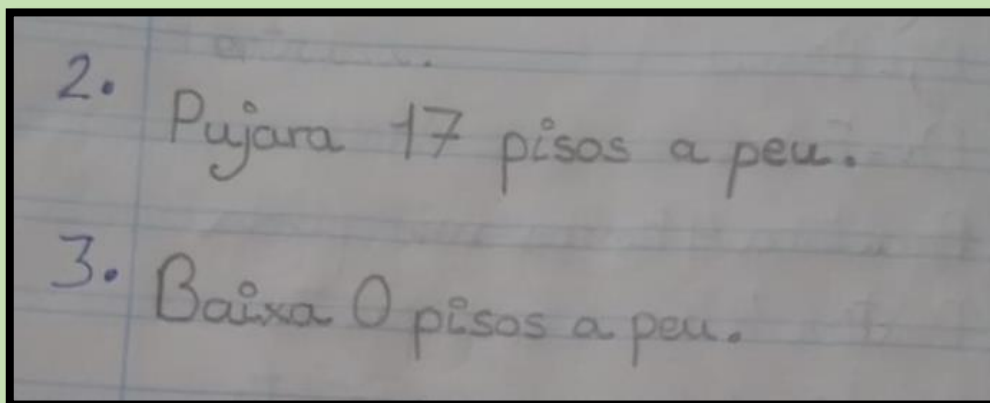 2. Pujara 17 pisos a peu.
3. Baixa 0 pisos a peu.